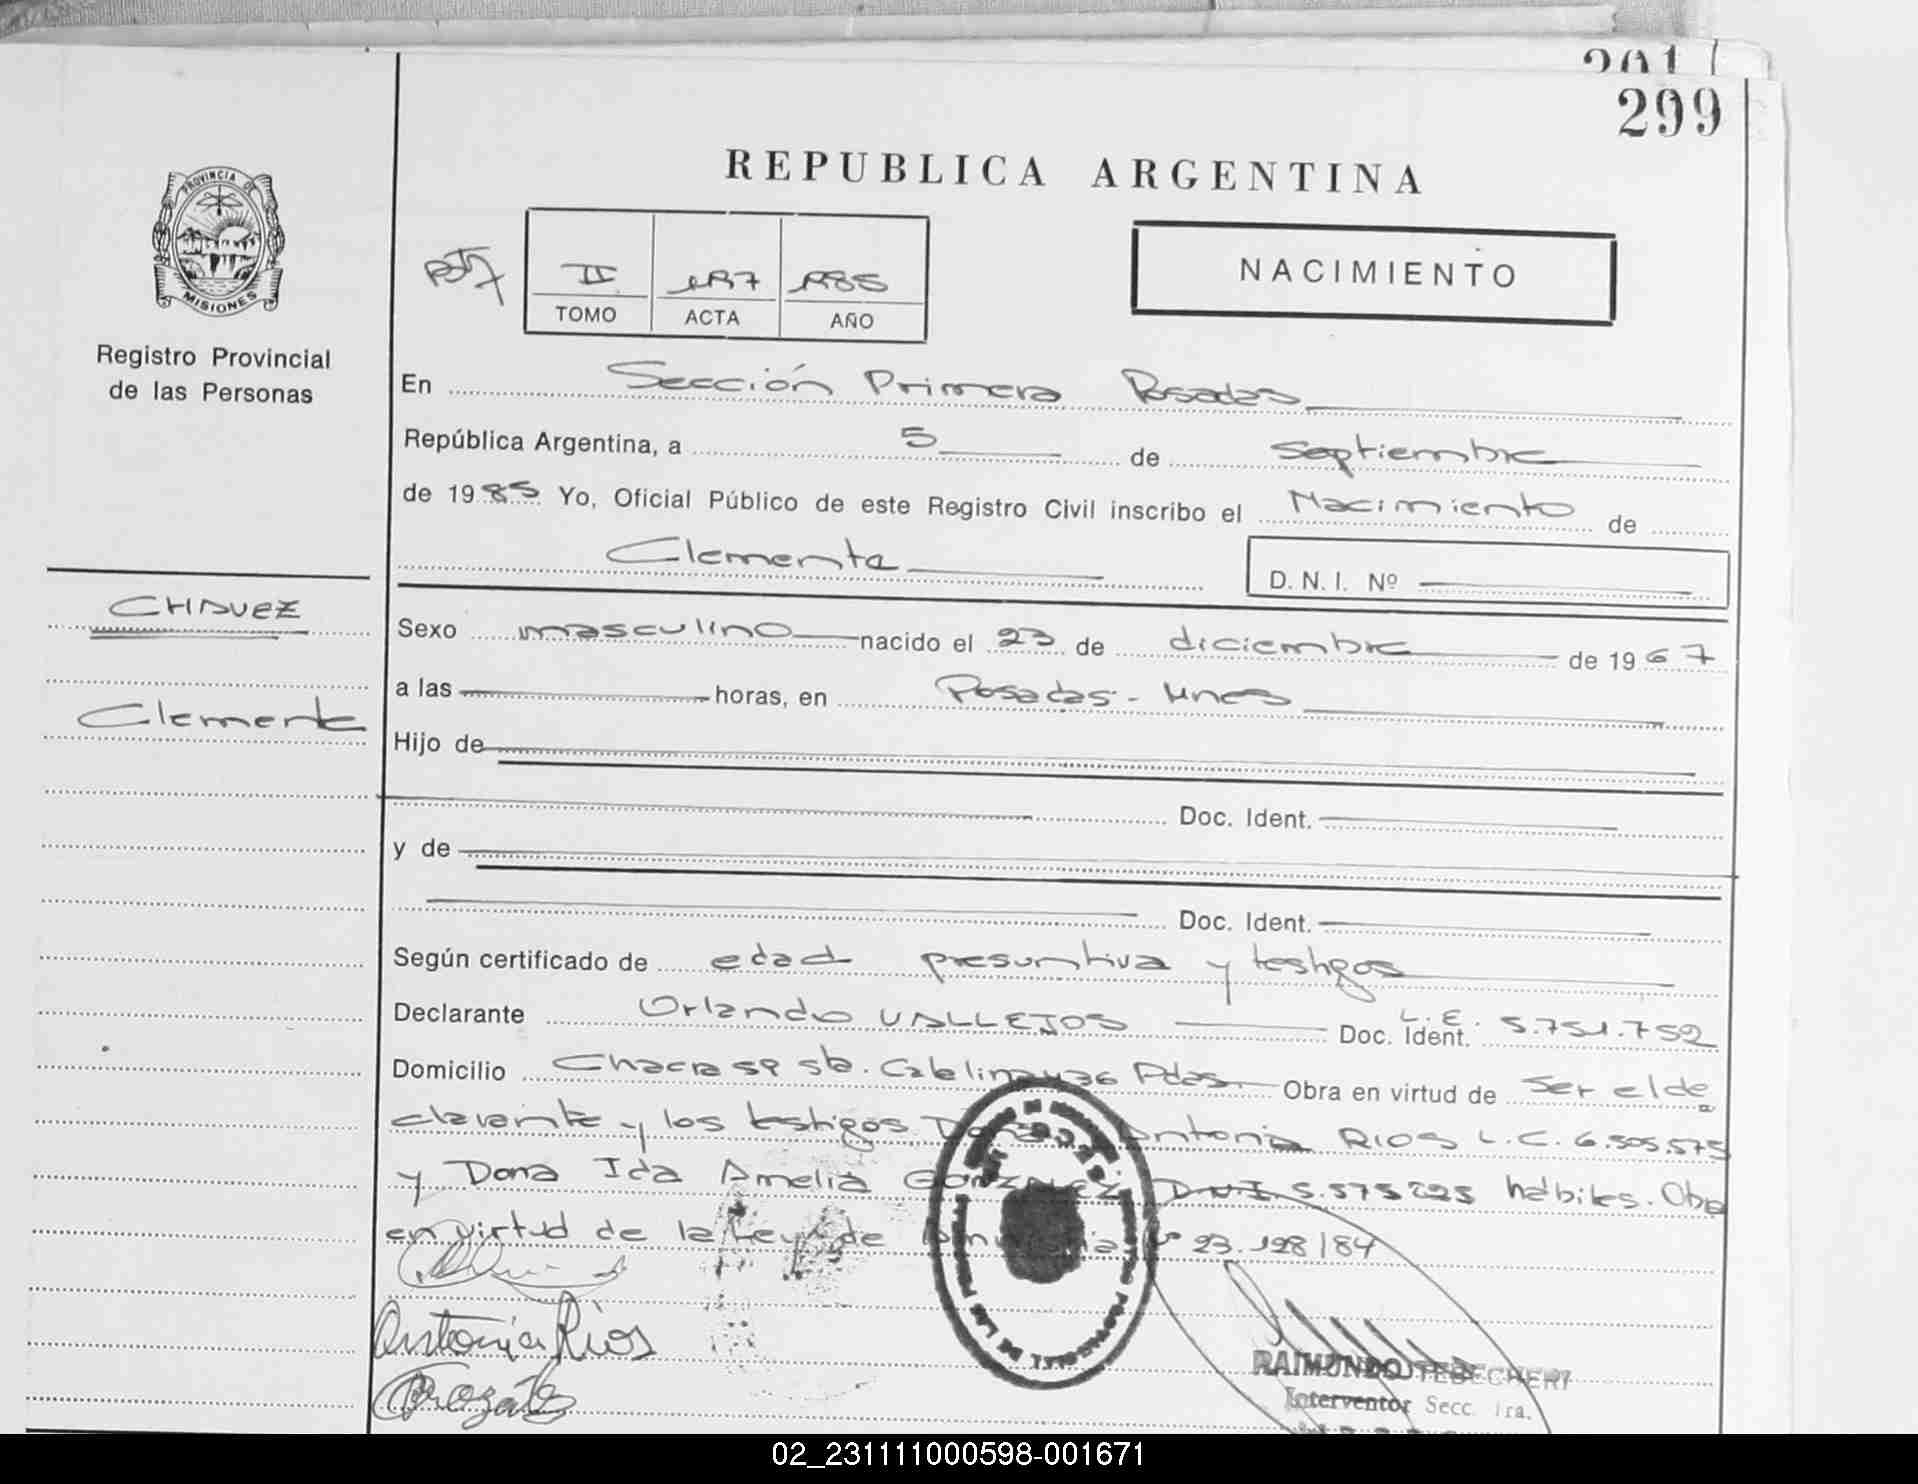 299
REPUBLICA ARGENTINA
PROVINCIA DE MISIONES
Registro Provincial
de las Personas
II
TOMO ACTA AÑO
NACIMIENTO
En Sección Primera Posadas
República Argentina, a 5 de septiembre
de 1985 Yo, Oficial Público de este Registro Civil inscribo el Nacimiento de
Clemente
D. N. I. Nº
CHAVEZ
Clemente
Sexo masculino nacido el 23 de diciembre de 1967
a las horas, en Posadas - Mnes
Hijo de
Doc. Ident.
y de
Doc. Ident.
Según certificado de edad presuntiva y testigos
Declarante Orlando VALLEJOS Doc. Ident. L.E. 5.751.752
Domicilio Chacra 59 sta. Catalina Pdas. Obra en virtud de Ser el de
clarante y los testigos Antonia RIOS L.C. 6.505.575
y Dona Ida Amelia GONZALEZ D.N.I. 5.575225 hábiles. Obra
en virtud de la Ley de Nº 23.128/84
Antonia Rios
RAIMUNDO TEBECHERI
Interventor Secc. 1ra.
02_231111000598-001671